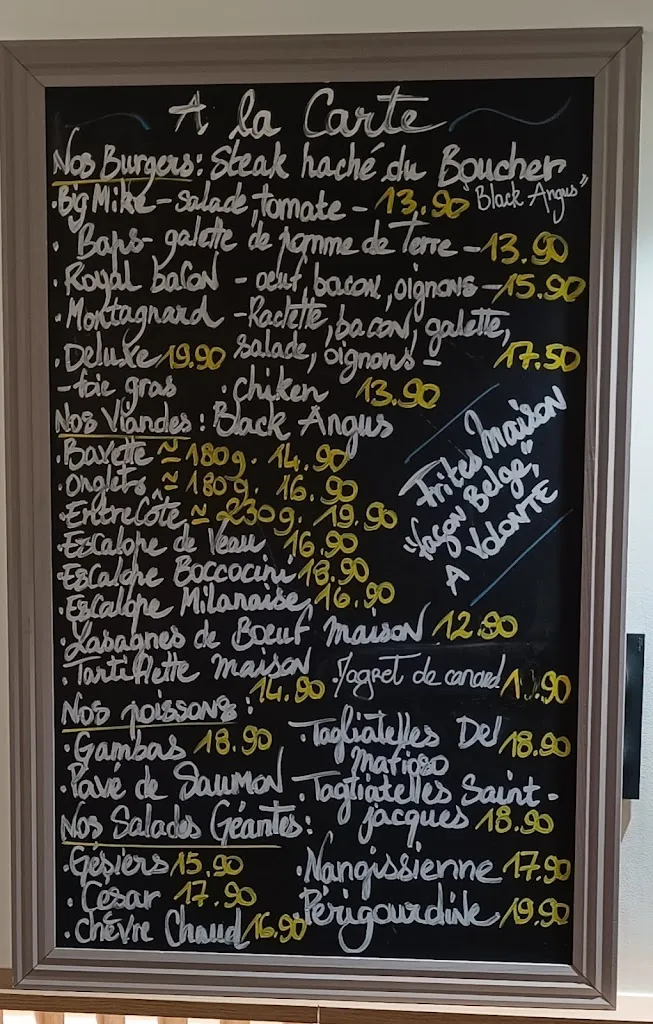 A la Carte
Nos Burgers: Steak haché du Boucher
"Black Angus"
• Big Mike - salade, tomate - 13.90
• Baps - galette de pomme de Terre - 13.90
• Royal bacon - oeuf, bacon, oignons - 15.90
• Montagnard - Raclette, bacon, galette,
salade, oignons - 17.50
• Deluxe 19.90
- foie gras • chiken 13.90
Nos Viandes: Black Angus
• Bavette ≃ 180g. 14.90
• Onglets ≃ 180g. 16.90
• EntreCôte ≃ 230g. 19.90
• Escalope de Veau 16.90
• Escalope Boccocini 18.90
• Escalope Milanaise 16.90
Frites Maison
"façon Belge"
A VOLONTE
• Lasagnes de Boeuf maison 12.90
• Tartiflette maison 14.90
• Magret de canard
Nos poissons:
• Gambas 18.90
• Pavé de Saumon
• Tagliatelles Del
Mafioso 18.90
• Tagliatelles Saint-
jacques 18.90
Nos Salades Géantes:
• Gésiers 15.90
• César 17.90
• Chèvre Chaud 16.90
• Nangissienne 17.90
• Périgourdine 19.90